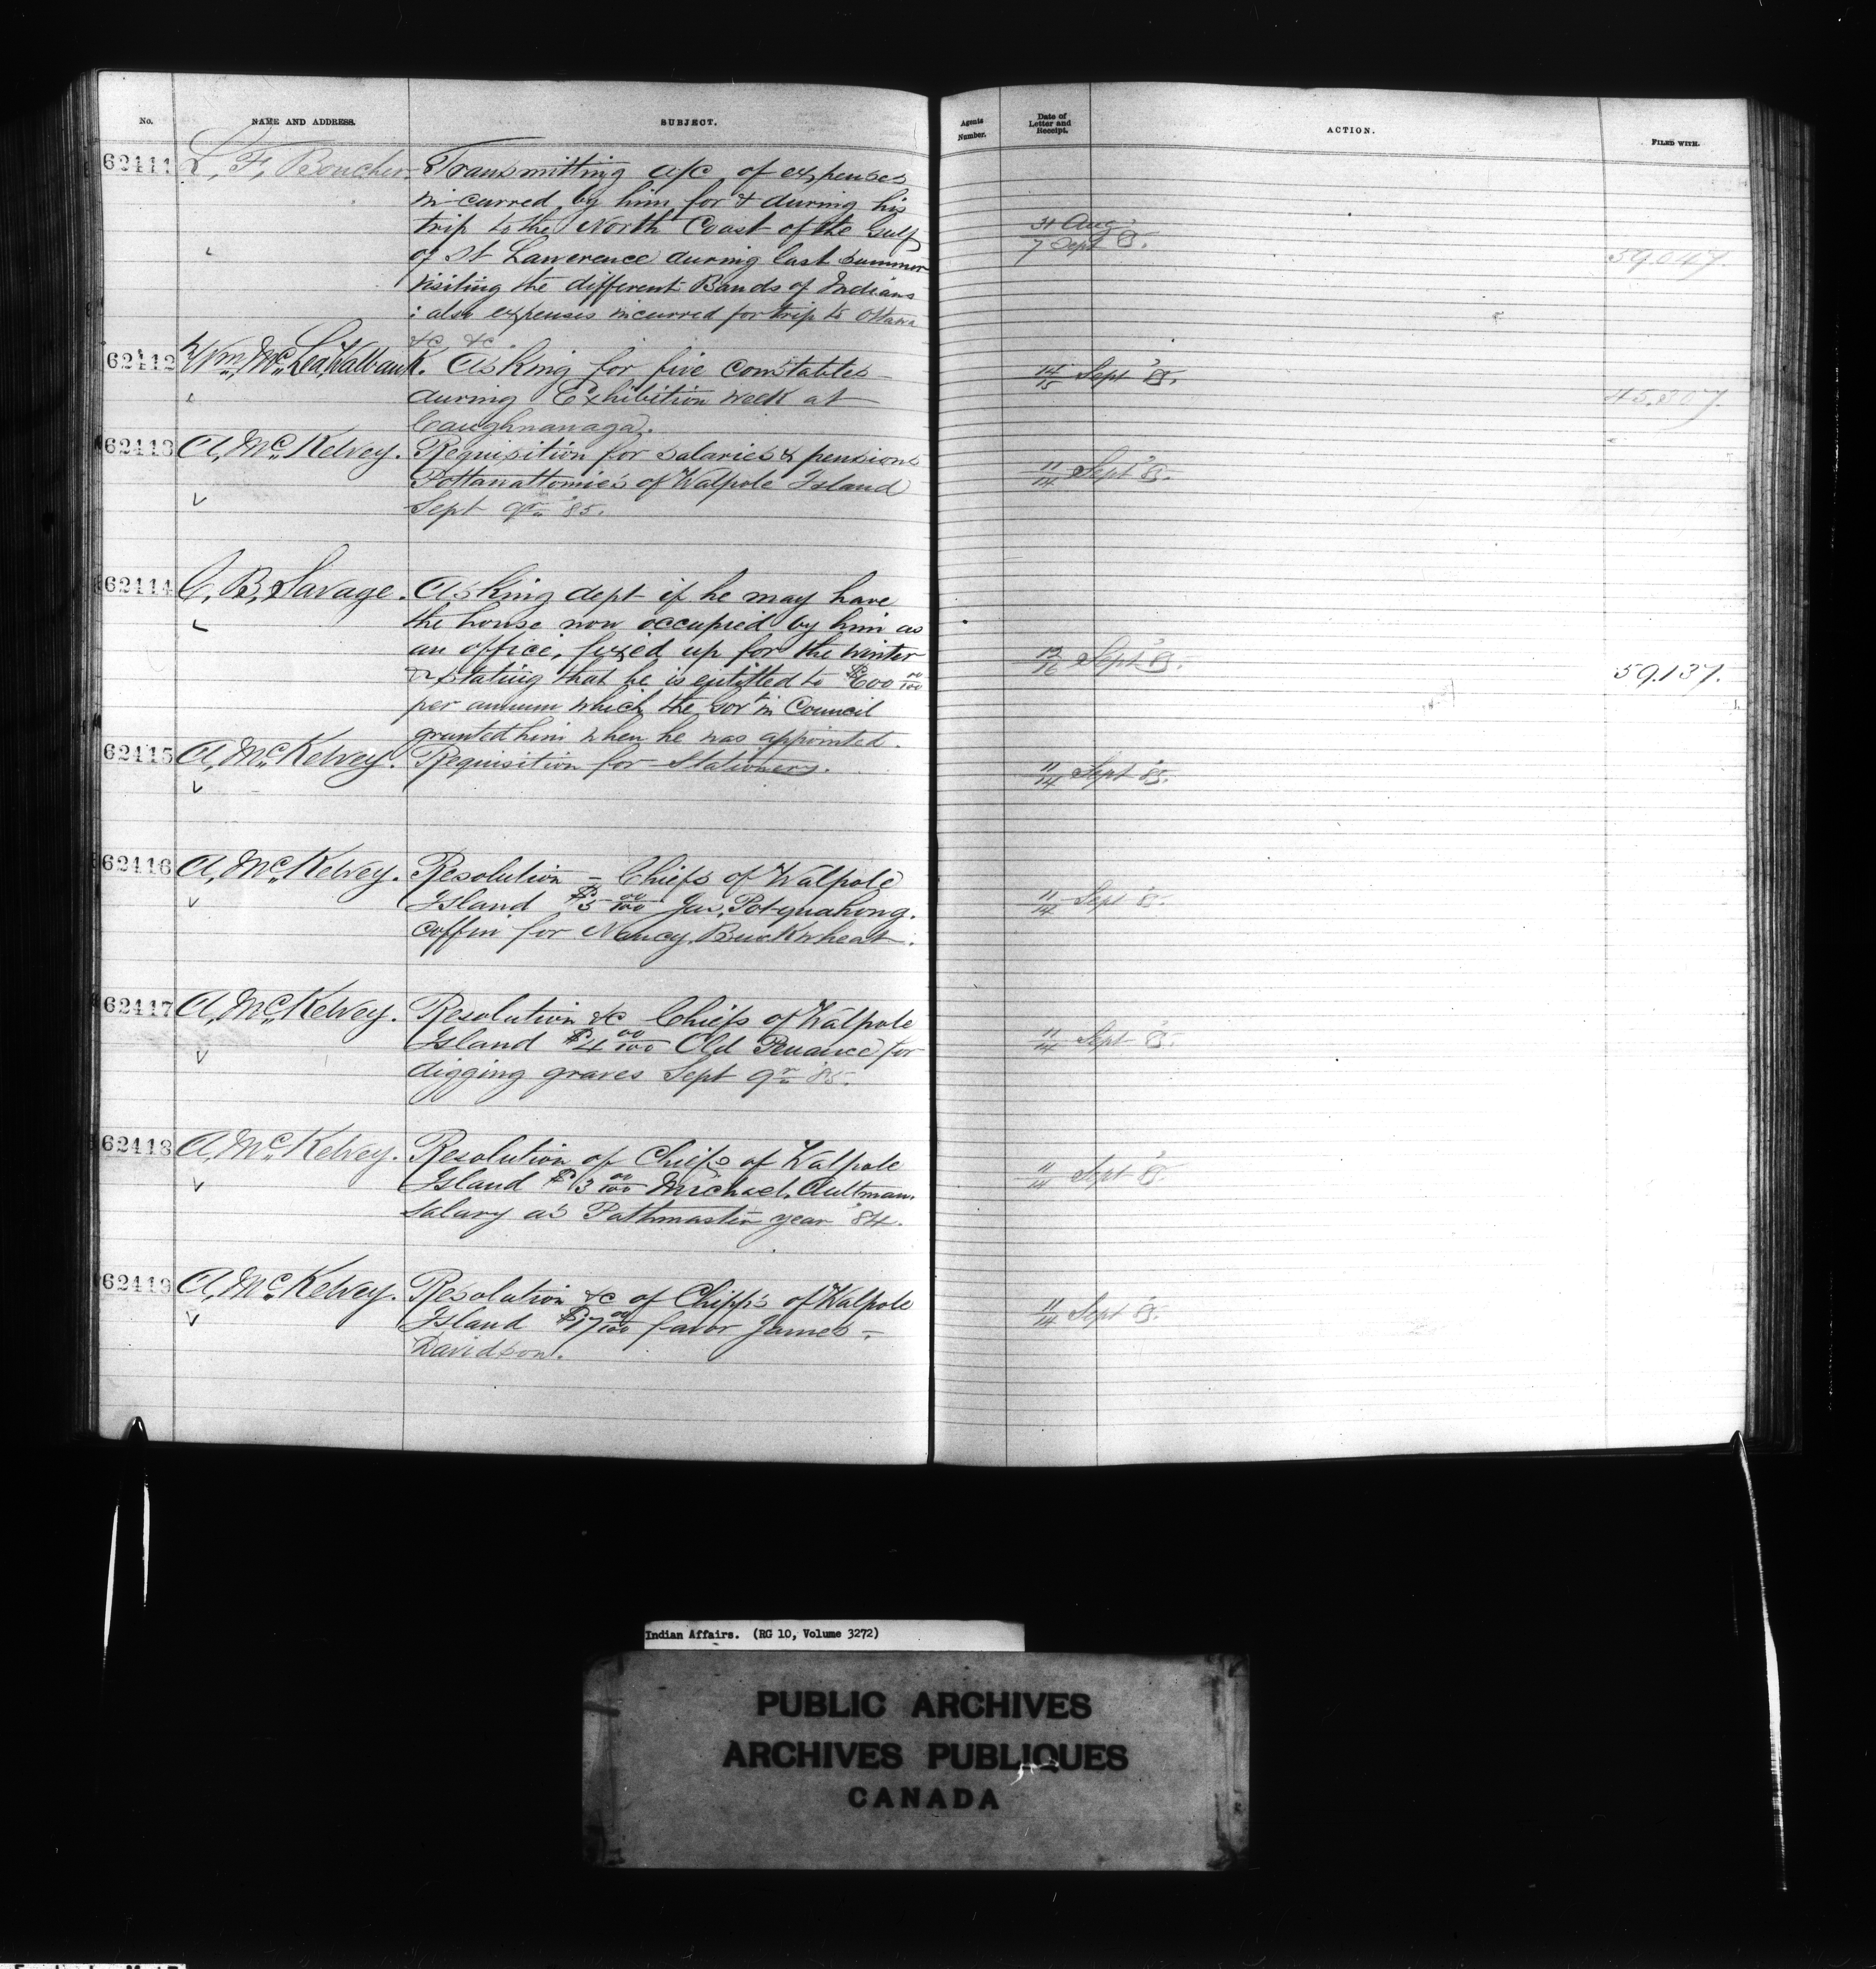 No. NAME AND ADDRESS. SUBJECT. Agents Number. Date of Letter and Receipt. ACTION. FILED WITH.
62411 L. F. Boucher. Transmitting a/c of expenses
incurred by him for & during his
trip to the North Coast of the Gulf 31 Aug
of St Lawerence during last summer 7 Sept '85. 59.047.
visiting the different Bands of Indians
: also expenses incurred for trip to Ottawa
&c, &c.
62412 Wm. Mc. Lea Walbank. Asking for five constables 14/15 Sept '85.
during Exhibition week at 45.807.
Caughnanaga.
62413 A. Mc. Kelvey. Requisition for salaries & pensions
Pottawattomies of Walpole Island 11/14 Sept '85.
Sept qr. '85.
62414 C. B. Savage. Asking dept if he may have
the house now occupied by him as
an office, fixed up for the winter
& stating that he is entitled to $600 00/100 12/16 Sept '85. 59.137.
per annum which the Gov in Council
granted him when he was appointed.
62415 A. Mc. Kelvey. Requisition for Stationery. 11/14 Sept '85.
62416 A. Mc. Kelvey. Resolution – Chiefs of Walpole
Island $5 00/100 Jas. Potquahong. 11/14 Sept '85.
Coffin for Nancy Buckwheat.
62417 A. Mc. Kelvey. Resolution &c Chiefs of Walpole
Island $4 00/100 Old Penance for 11/14 Sept '85.
digging graves Sept qr. '85.
62418 A. Mc. Kelvey. Resolution of Chiefs of Walpole
Island $3 00/100 Michael. Aultman. 11/14 Sept '85.
Salary as Pathmaster year '84.
62419 A. Mc. Kelvey. Resolution &c of Chipps of Walpole
Island $17 00/100 favor James – 11/14 Sept '85.
Davidson.
Indian Affairs. (RG 10, Volume 3272)
PUBLIC ARCHIVES
ARCHIVES PUBLIQUES
CANADA